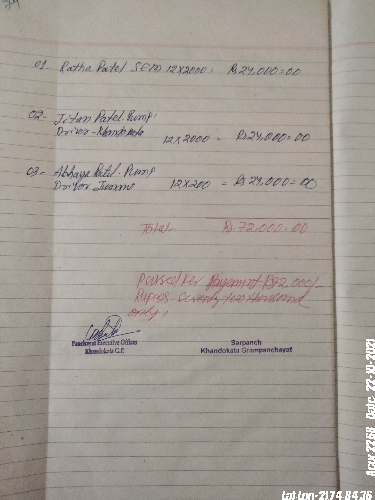 01- Ratha Patel SEM 12x2000= Rs 24,000=00
02- Jitan Patel Pump
Driver-Mandakata
12 x 2000 = Rs 24,000=00
03- Abhaya Patel- Pump
Driver
12x200 = Rs 24,000=00
Total Rs 72,000=00
Passed for Payement Rs 72,000/-
Rupees Seventy two thousand
only,
Panchayat Executive Officer
Khandokata G.P.
Sarpanch
Khandokata Grampanchayat